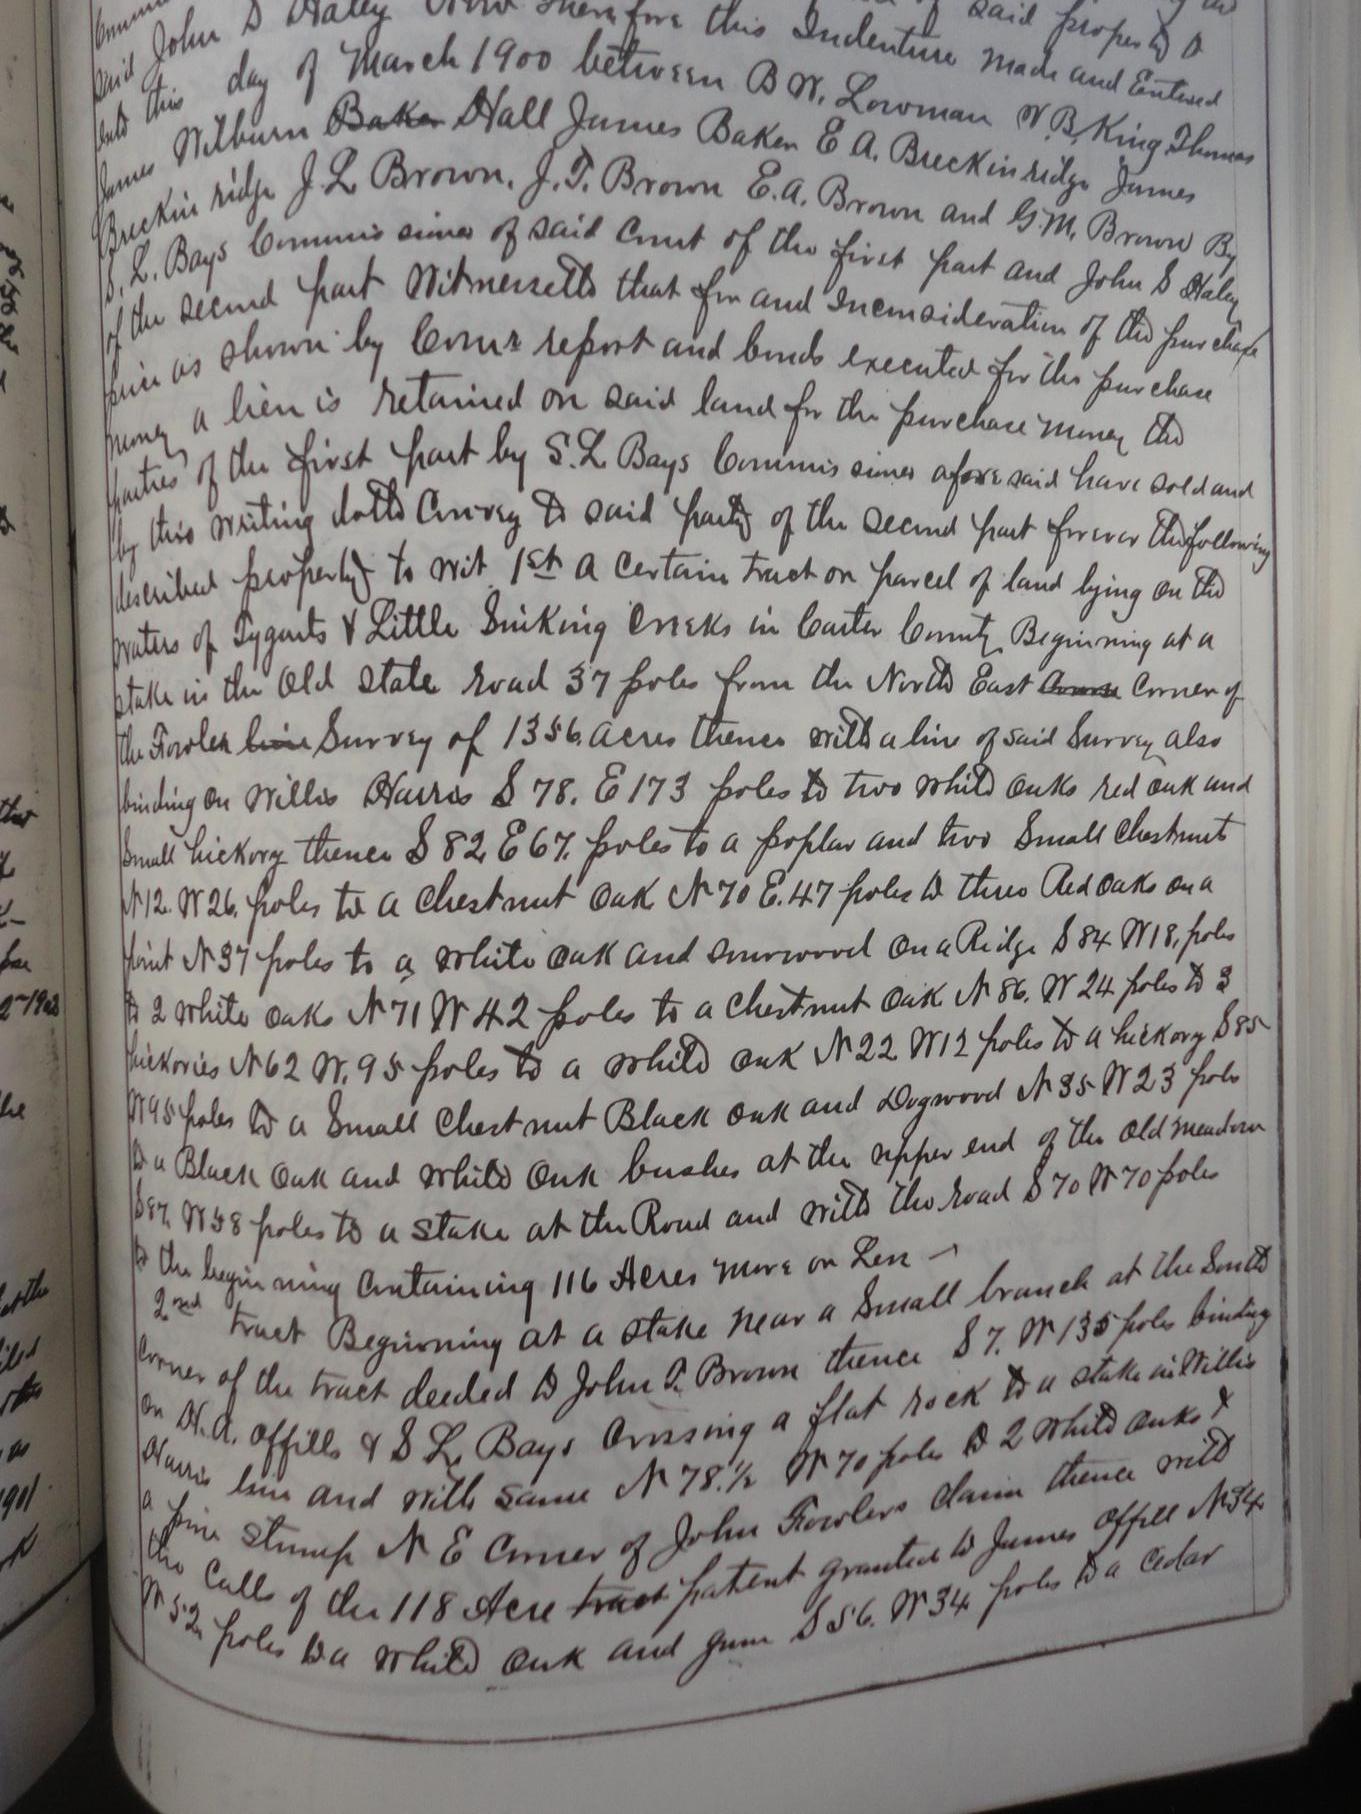 said John S Haley Now Therefore this Indenture Made and Entered
into this day of March 1900 between B W. Lowman W. B. King Thomas
James Wilburn Baker Hall James Baker E A. Breckinridge James
Breckinridge J L Brown, J. T. Brown E. A. Brown and G. M. Brown By
S. L. Bays Commissioner of said Court of the first part and John S Haley
of the second part Witnesseth that for and Inconsideration of the purchase
price as shown by Comrs report and bonds executed for the purchase
money a lien is retained on said land for the purchase money the
parties of the first part by S. L Bays Commissioner afore said have sold and
by this writing doth Convey to said party of the second part forever the following
described property to wit 1st a certain tract or parcel of land lying on the
waters of Tygarts & Little Sinking Creeks in Carter County Beginning at a
stake in the Old State Road 37 poles from the North East Corner of
the Fowler line Survey of 1356 acres thence with a line of said Survey also
binding on Willis Harris S 78. E 173 poles to two white oaks red oak and
Small hickory thence S 82 E 67. poles to a poplar and two Small Chestnut
N 12. W 26. poles to a Chestnut Oak N 70 E. 47 poles to three Red oaks on a
point N 37 poles to a white oak and sourwood on a Ridge S 84 W 18, poles
to 2 white oaks N 71 W 42 poles to a Chestnut oak N 86. W 24 poles to 3
hickories N 62 W. 95 poles to a white oak N 22 W 12 poles to a hickory S 85
W 95 poles to a Small Chestnut Black oak and Dogwood N 35 W 23 poles
to a Black Oak and white Oak bushes at the upper end of the old meadow
S 87. W 58 poles to a stake at the Road and with the road S 70 W 70 poles
to the beginning Containing 116 Acres more or Less
2nd tract Beginning at a stake near a Small branch at the South
Corner of the tract deeded to John T. Brown thence S 7. W 135 poles binding
on H. A. Offills & S L. Bays Crossing a flat rock to a stake in Willis
Harris line and with same N 78. 1/2 W 70 poles to 2 white oaks &
a pine stump N E Corner of John Fowlers claim thence with
the calls of the 118 Acre tract patent granted to James Offill N 34
W 52 poles to a white oak and gum S 56. W 34 poles to a Cedar